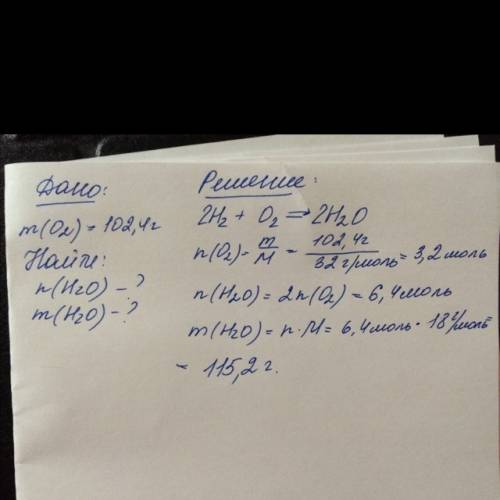 Дано:
m(O₂) = 102,4г
Найти:
n(H₂O) - ?
m(H₂O) - ?
Решение:
2H₂ + O₂ = 2H₂O
n(O₂) = m/M = 102,4г/32 г/моль = 3,2 моль
n(H₂O) = 2n(O₂) = 6,4 моль
m(H₂O) = n·M = 6,4 моль · 18 г/моль =
= 115,2 г.